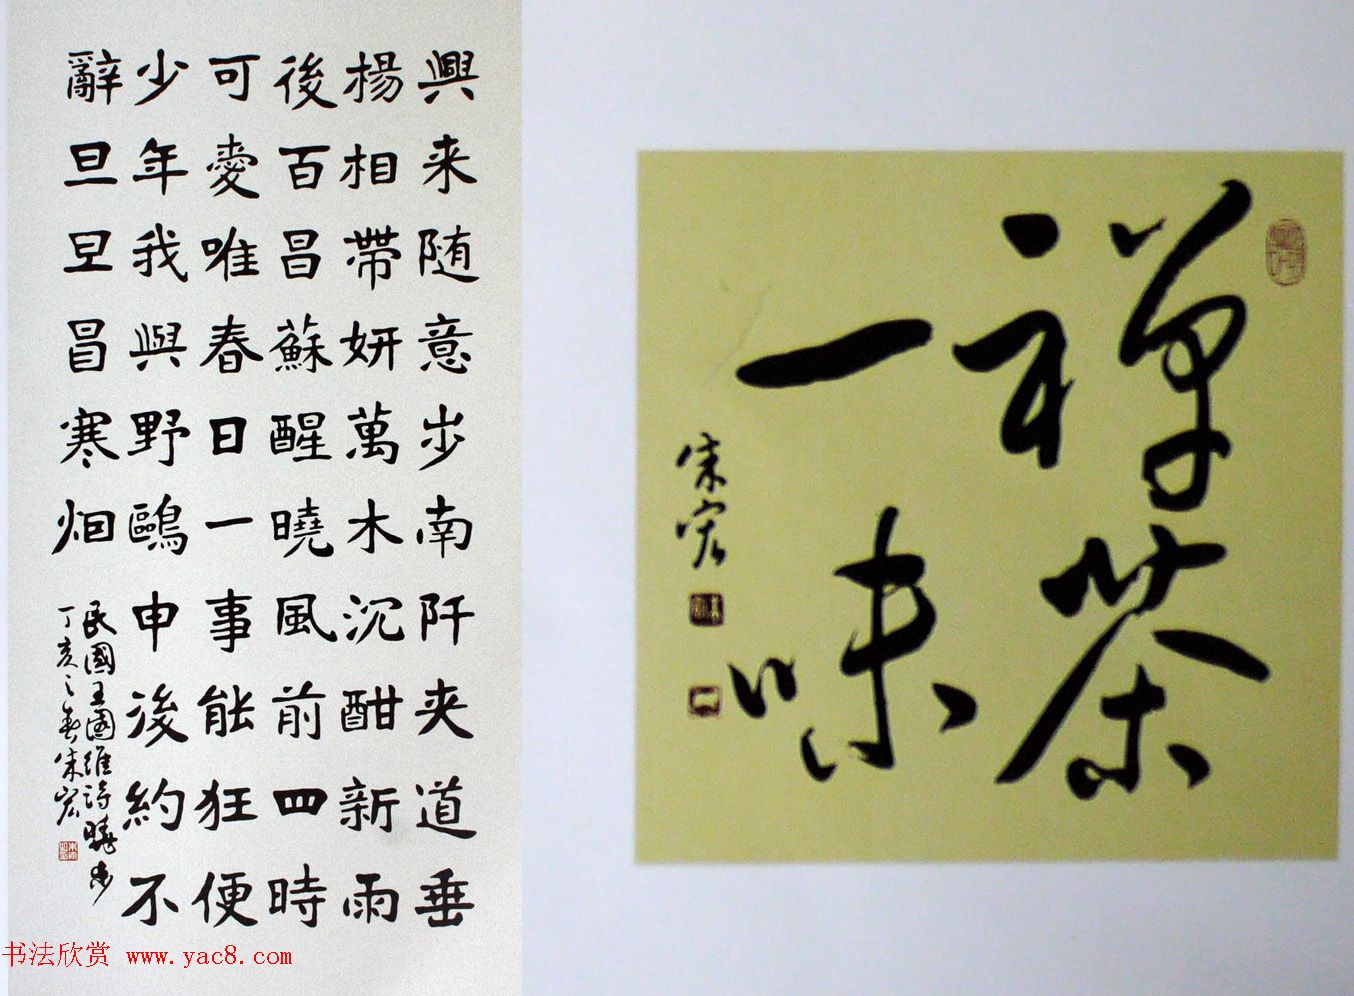 興来随意步南阡夹道垂
楊相帶妍萬木沉酣新雨
後百昌蘇醒曉風前四時
可愛唯春日一事能狂便
少年我與野鷗申後約不
辭旦旦冒寒烟
民國王國維詩曉步
丁亥之春朱宏
禅茶
一味
朱宏
书法欣赏 www.yac8.com